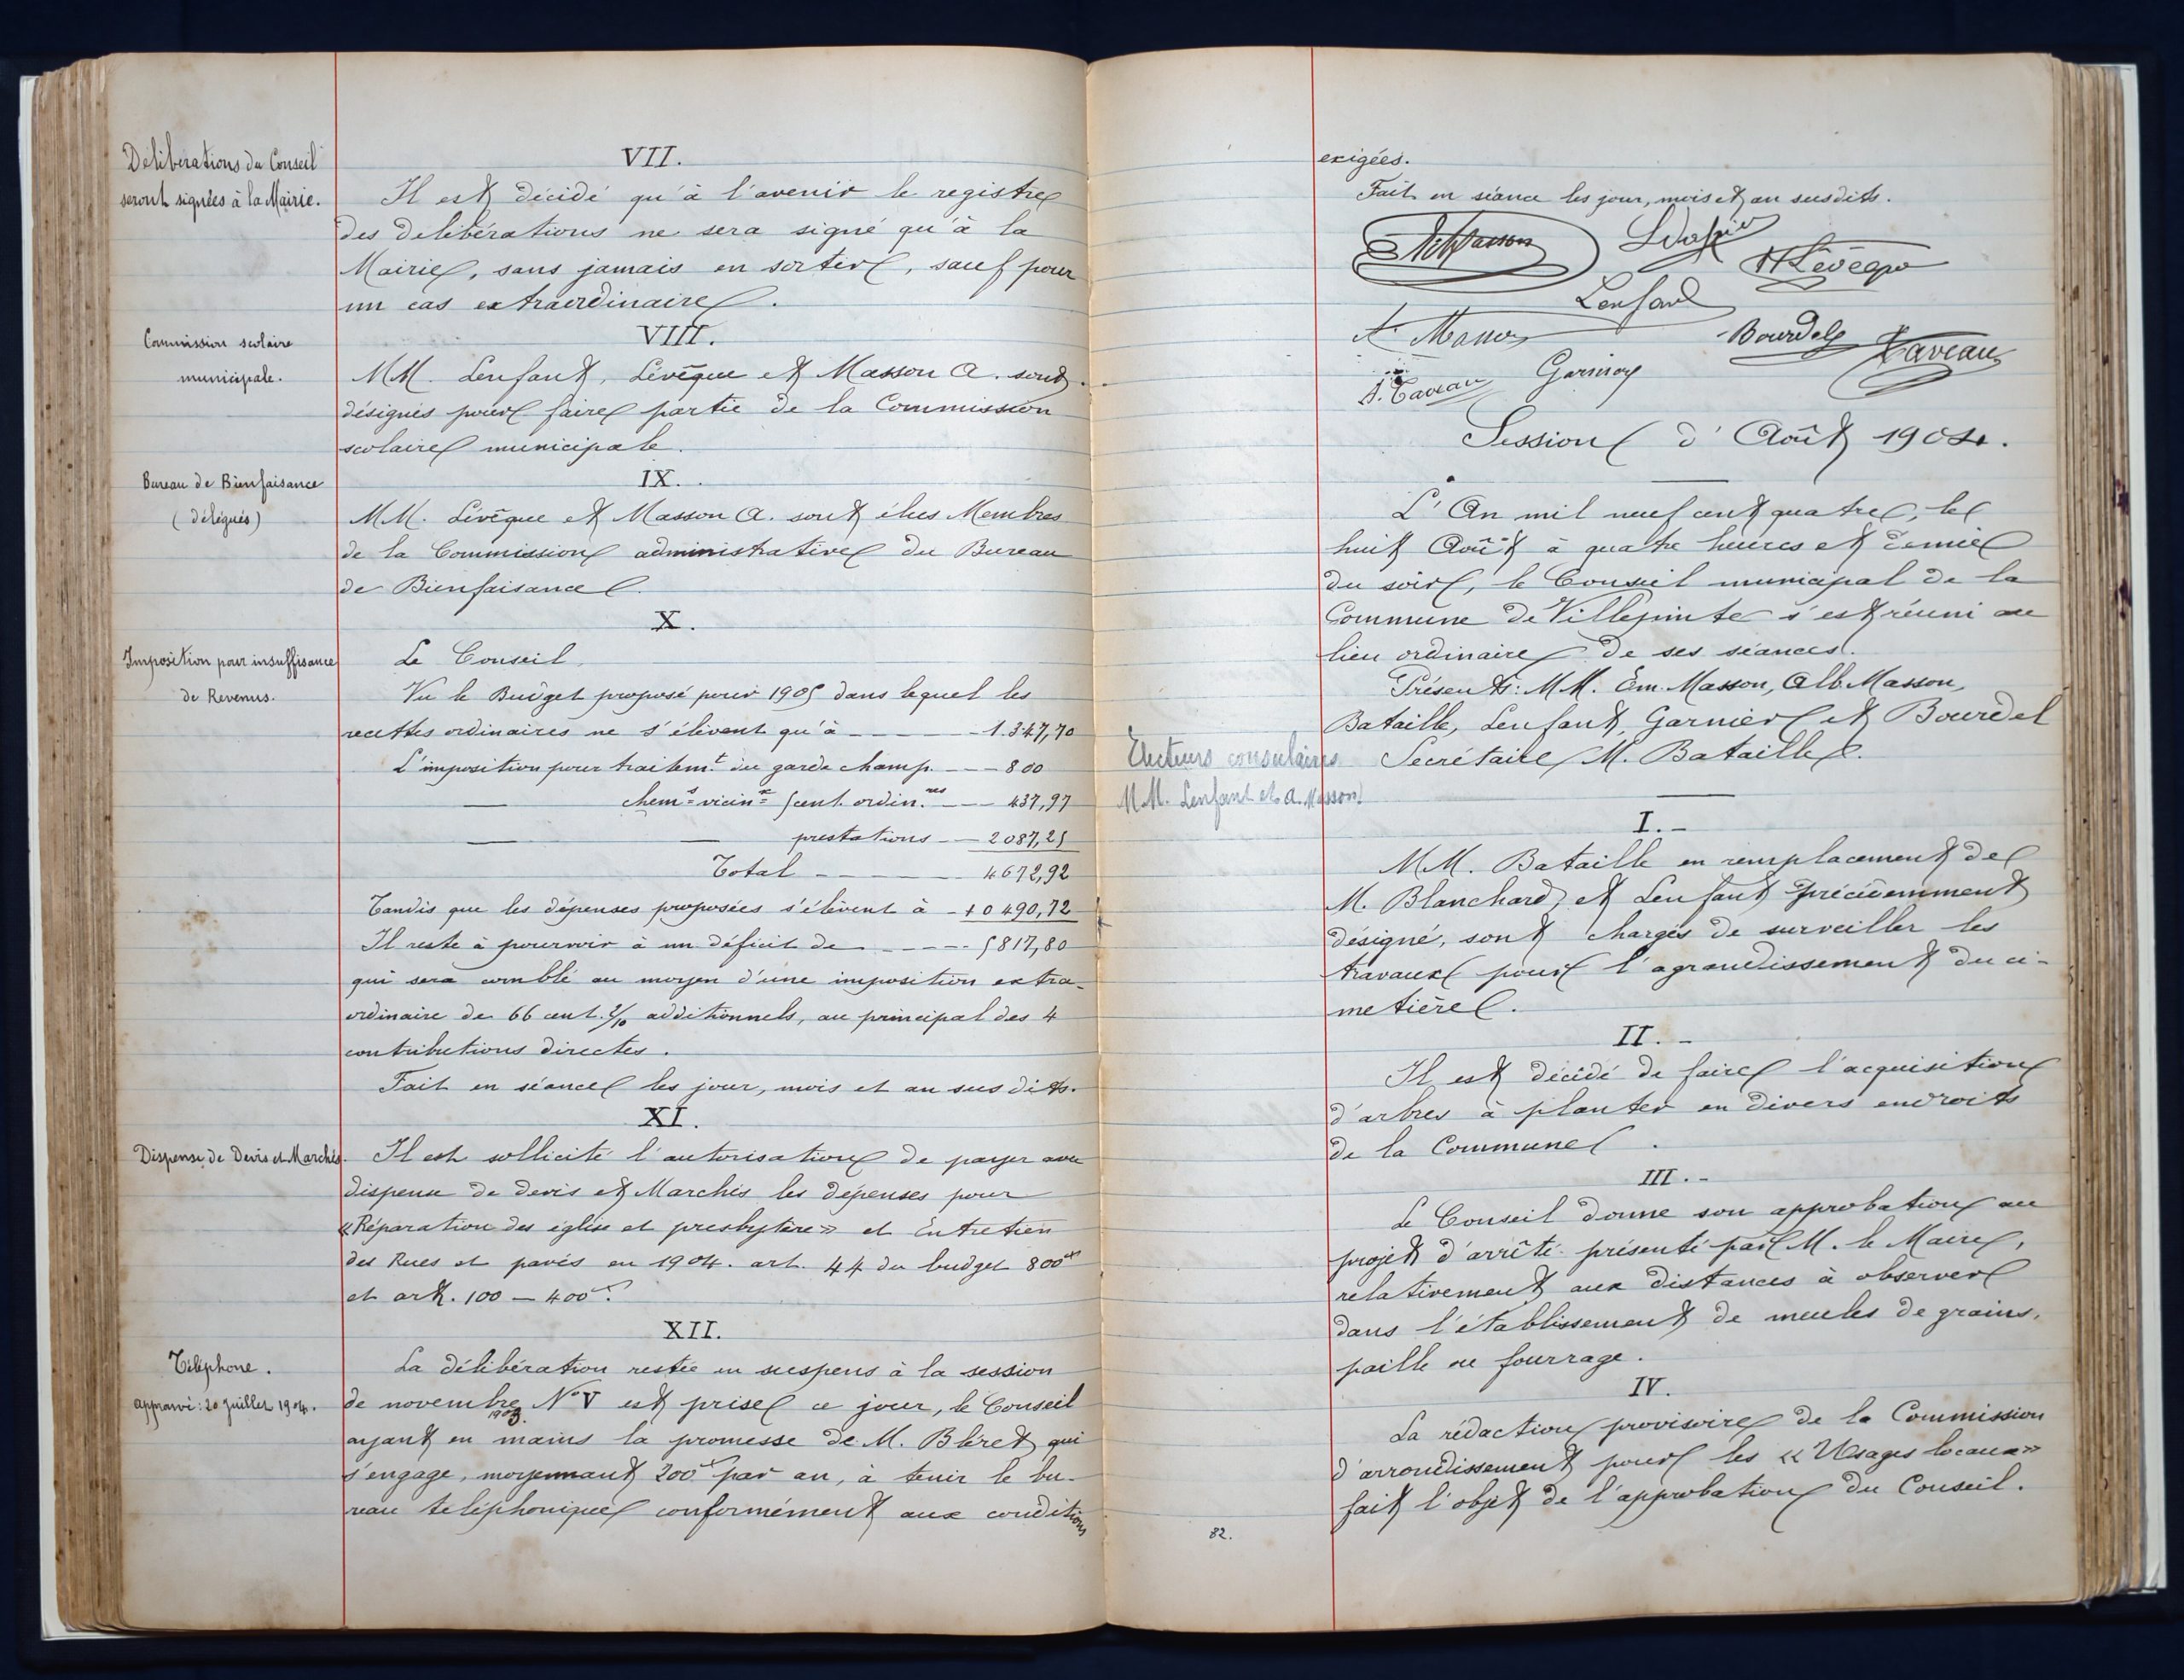 Délibérations du Conseil
seront signées à la Mairie.
VII.
Il est décidé qu'à l'avenir le registre
des delibérations ne sera signé qu'à la
Mairie, sans jamais en sortir, sauf pour
un cas extraordinaire.
Commission scolaire
municipale.
VIII.
MM. Lenfant, Lévêque et Masson A. sont
désignés pour faire partie de la Commission
scolaire municipale.
Bureau de Bienfaisance
(délégués)
IX.
MM. Lévêque et Masson A. sont élus Membres
de la Commission administrative du Bureau
de Bienfaisance.
Imposition pour insuffisance
de Revenus.
X.
Le Conseil,
Vu le Budget proposé pour 1905 dans lequel les
recettes ordinaires ne s'élèvent qu'à - - - - - 1.347,70
L'imposition pour traitemt du garde champ. - - 800
— chems vicinx (cent. ordin.res - - - 437,97
— — prestations - - 2087,25
Total - - - - - 4672,92
Tandis que les dépenses proposées s'élèvent à - 10490,72
Il reste à pourvoir à un déficit de - - - - - 5817,80
qui sera comblé au moyen d'une imposition extra-
ordinaire de 66 cent. 2/10 additionnels, au principal des 4
contributions directes.
Fait en séance les jour, mois et an sus dits.
Dispense de Devis et Marchés.
XI.
Il est sollicité l'autorisation de payer avec
dispense de devis et Marchés les dépenses pour
«Réparation des église et presbytère» et Entretien
des Rues et pavés en 1904. art. 44 du budget 800fr
et art. 100 — 400fr.
Téléphone.
approuvé : 20 Juillet 1904.
XII.
La délibération restée en suspens à la session
de novembre 1903. N° V est prise ce jour, le Conseil
ayant en mains la promesse de M. Bléret qui
s'engage, moyennant 200fr par an, à tenir le bu-
reau teléphonique conformément aux conditions
exigées.
Fait en séance les jour, mois et an susdits.
Masson
H Lévêque
Lenfant
A. Masson
Bourdel
Taveau
Garnier
J. Taveau
Session d'Août 1904.
L'An mil neuf cent quatre, le
huit Août à quatre heures et demie
du soir, le Conseil municipal de la
Commune de Villepinte s'est réuni au
lieu ordinaire de ses séances.
Présents : MM. Em. Masson, Alb. Masson,
Bataille, Lenfant, Garnier et Bourdel
Secrétaire M. Bataille.
Electeurs consulaires
MM. Lenfant et A. Masson
I.-
MM. Bataille en remplacement de
M. Blanchard, et Lenfant précédemment
désigné, sont chargés de surveiller les
travaux pour l'agrandissement du ci-
metière.
II.-
Il est décidé de faire l'acquisition
d'arbres à planter en divers endroits
de la Commune.
III.-
Le Conseil donne son approbation au
projet d'arrêté présenté par M. le Maire,
relativement aux distances à observer
dans l'établissement de meules de grains,
paille ou fourrage.
IV.
La rédaction provisoire de la Commission
d'arrondissement pour les «Usages locaux»
fait l'objet de l'approbation du Conseil.
82.